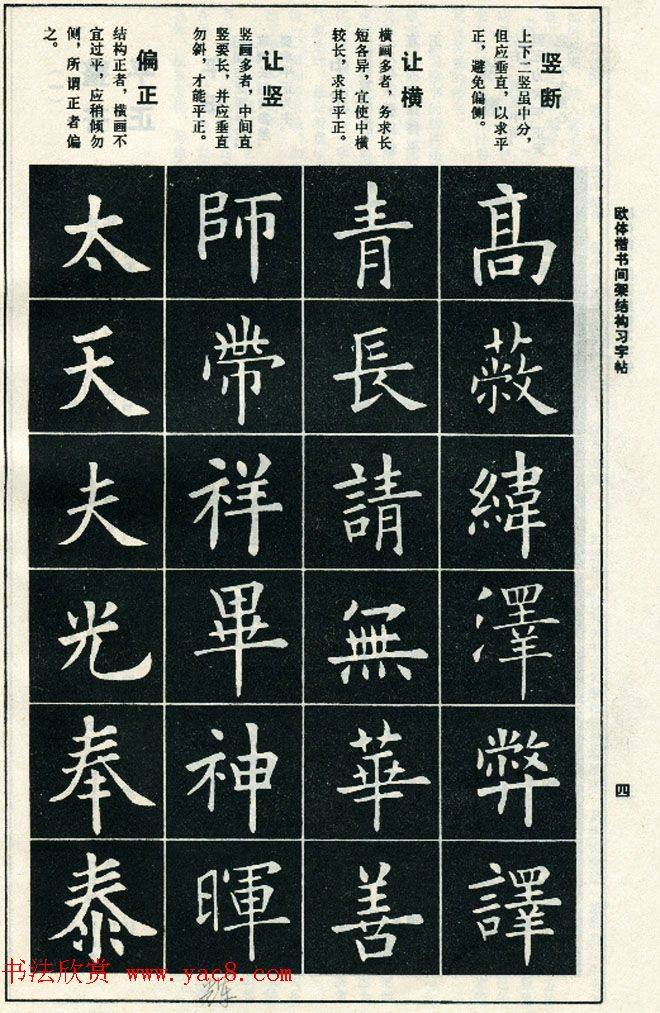 欧体楷书间架结构习字帖
四
竖断
上下二竖虽中分，
但应垂直，以求平
正，避免偏侧。
髙蔽緯澤弊譯
让横
横画多者，务求长
短各异，宜使中横
较长，求其平正。
青長請無華善
让竖
竖画多者，中间直
竖要长，并应垂直
勿斜，才能平正。
師帶祥畢神暉
偏正
结构正者，横画不
宜过平，应稍倾勿
侧，所谓正者偏
之。
太天夫光奉泰
书法欣赏 www.yac8.com